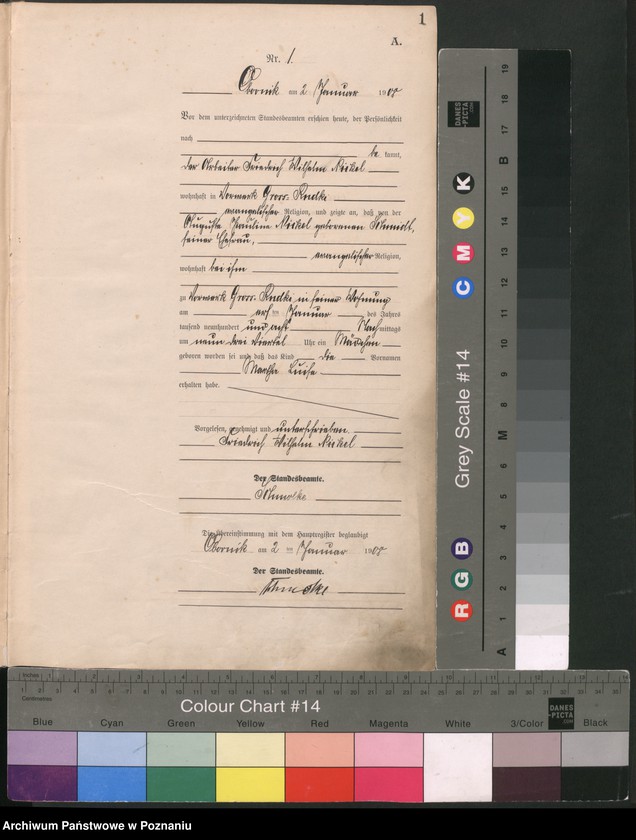 1
A.
Nr. 1.
Obornik am 2 Januar 1908
Vor dem unterzeichneten Standesbeamten erschien heute, der Persönlichkeit
nach
be kannt,
der Arbeiter Friedrich Wilhelm Nickel
wohnhaft in Vorwerk Gross
evangelischer Religion, und zeigte an, daß von der
Auguste Pauline Nickel geborenen Schmidt,
seiner Ehefrau,
evangelischer Religion,
wohnhaft bei ihm
zu Vorwerk Gross in seiner Wohnung
am ersten Januar des Jahres
tausend neunhundert und acht Nachmittags
um neun drei Viertel Uhr ein Mädchen
geboren worden sei und daß das Kind die Vornamen
Martha Luise
erhalten habe.
Vorgelesen, genehmigt und unterschrieben
Friedrich Wilhelm Nickel
Der Standesbeamte.
Die Übereinstimmung mit dem Hauptregister beglaubigt
Obornik am 2 ten Januar 1908
Der Standesbeamte.
Grey Scale #14
DANES
-PICTA
.COM
C M Y K
R G B
A 1 2 3 4 5 6 M 8 9 10 11 12 13 14 15 B 17 18 19
Inches
Centimetres
Colour Chart #14
DANES
-PICTA
.COM
Blue Cyan Green Yellow Red Magenta White 3/Color Black
Archiwum Państwowe w Poznaniu